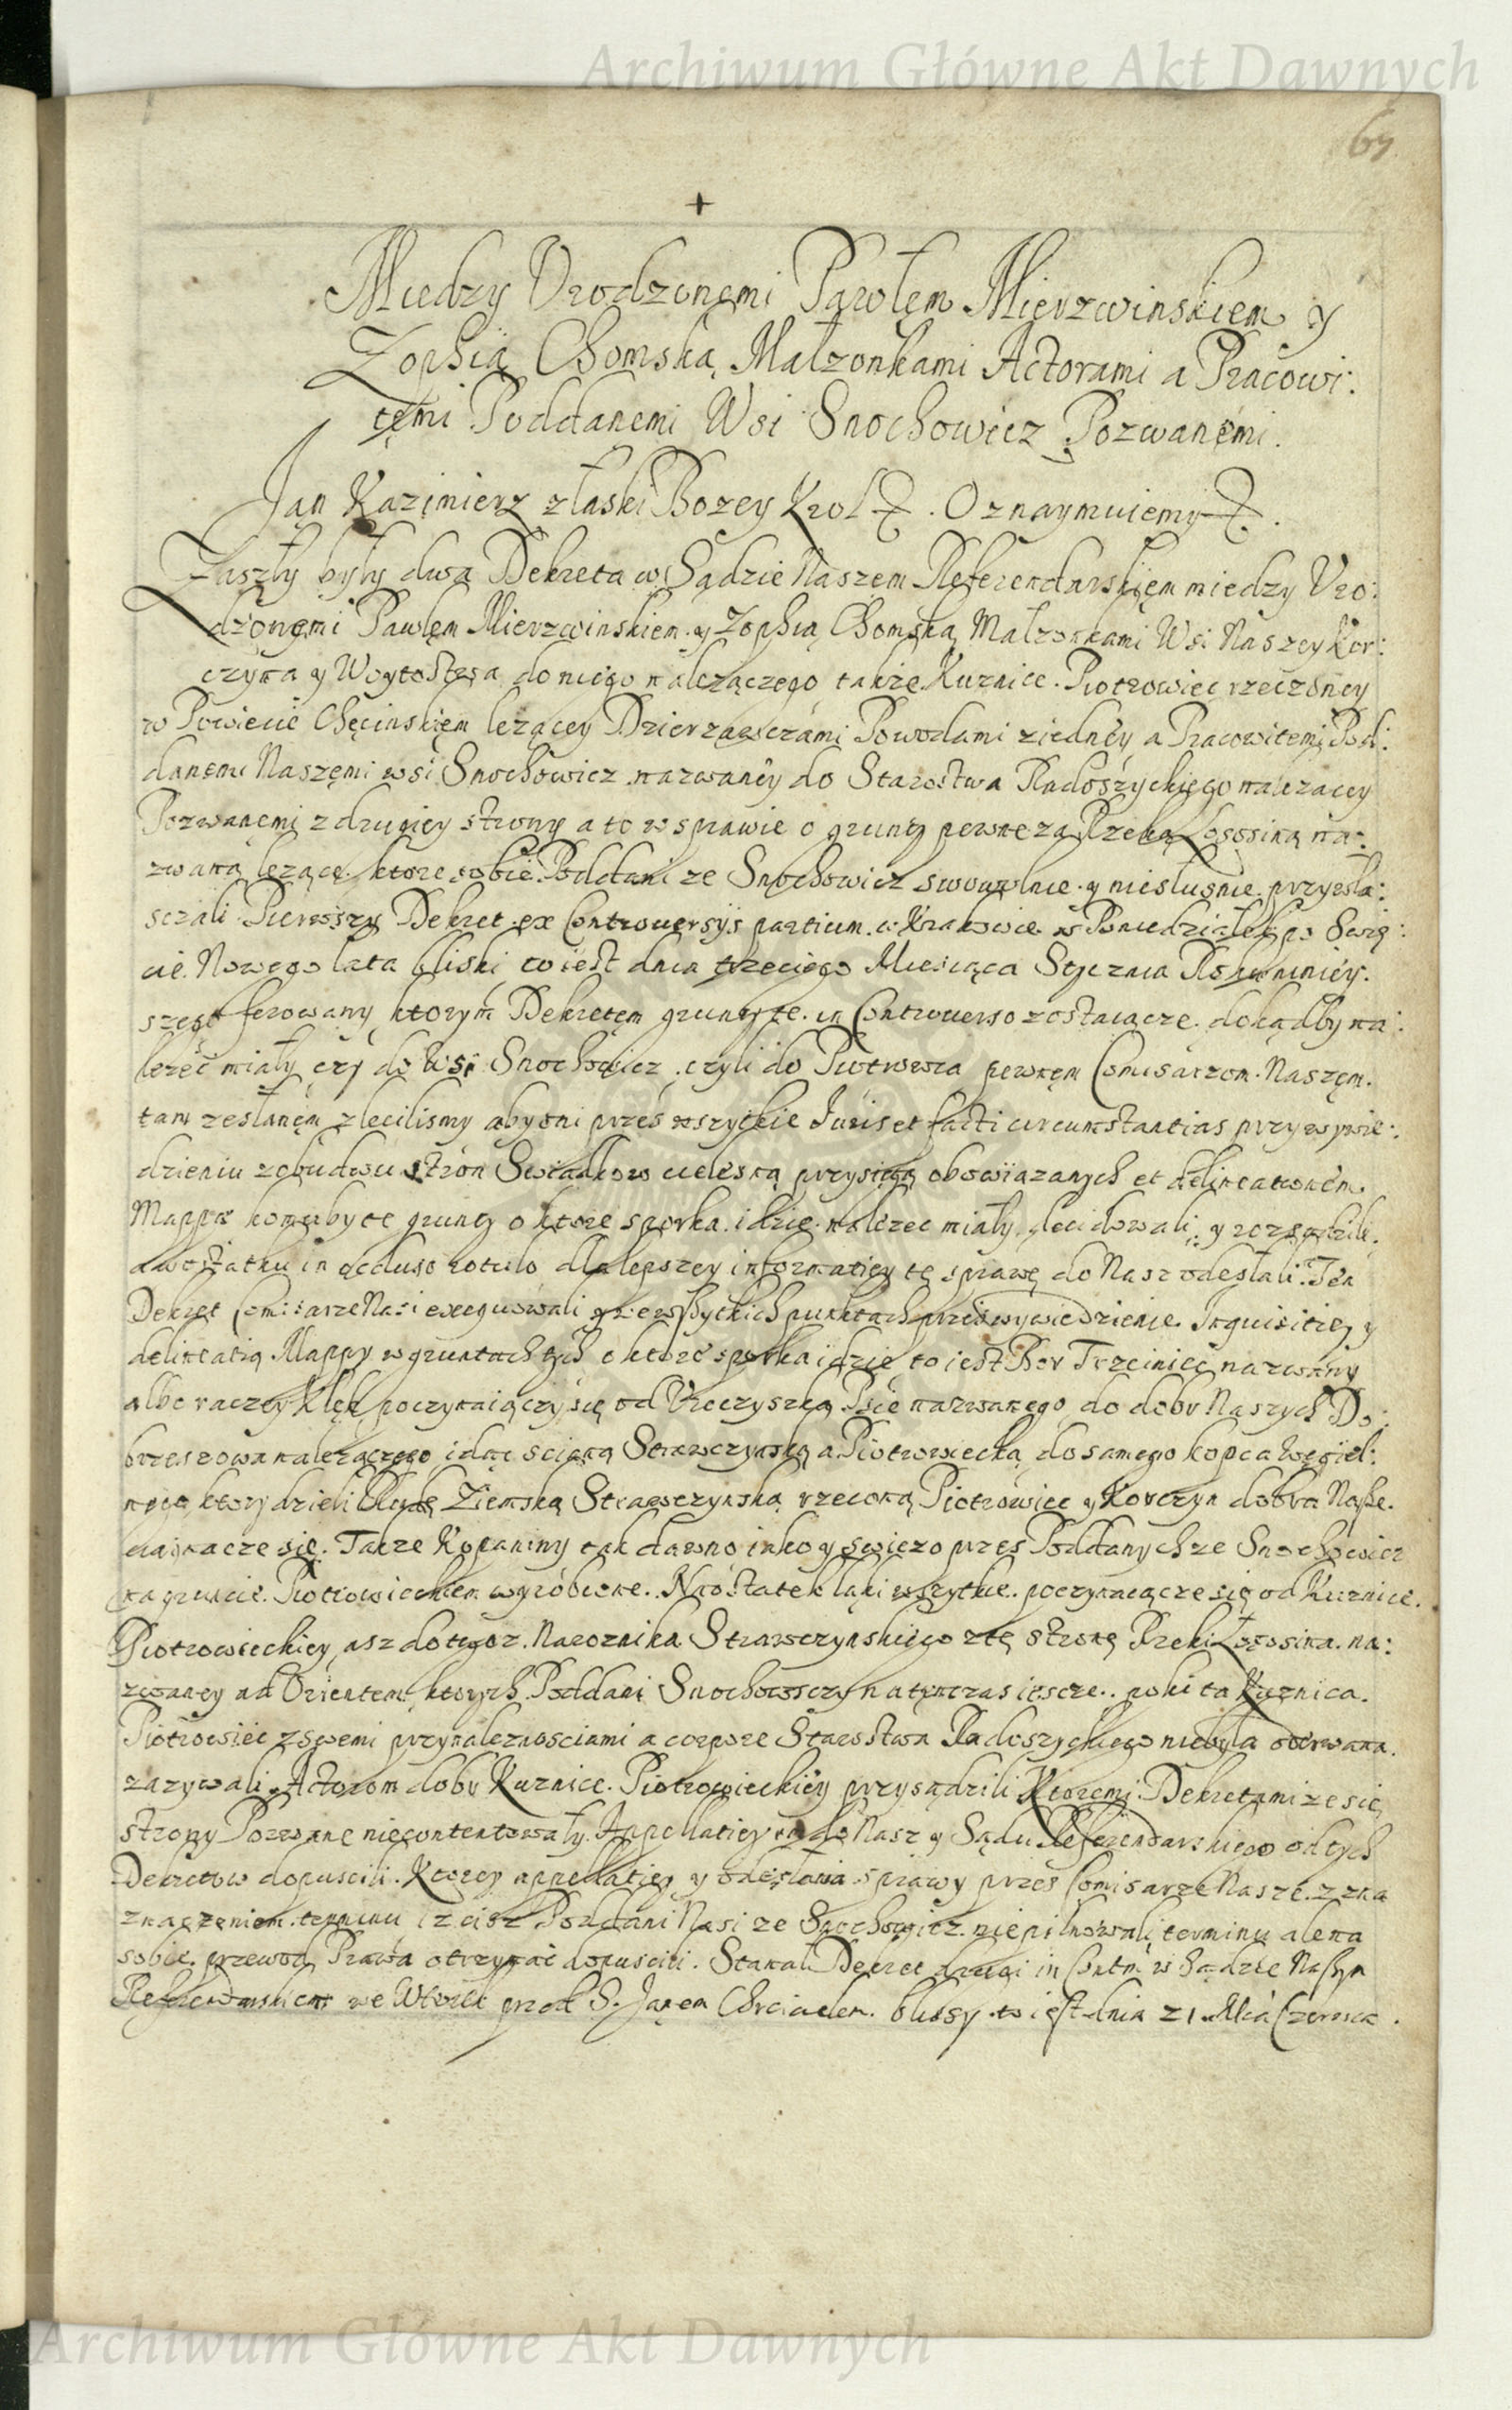 Archiwum Główne Akt Dawnych
69
Miedzy Urodzonęmi Pawłęm Mierzwinskiem y
Zophią Chomską Małzonkami Actorami a Pracowi:
tęmi Poddanemi Wsi Snochowicz Pozwanęmi.
Jan Kazimierz z łaski Bozey Krol. Oznaymuiemy.
Zaszły były dwa Dekreta w Sądzie Naszem Referendarskięm miedzy Uro:
dzonęmi Pawłęm Mierzwinskiem y Zophią Chomską Małzonkami Wsi Naszey Kor:
czyna y Woytostwa do niego nalezącego takze Kuznice Piotrowiec rzeczoney
w Powiecie Chęcinskięm lezącey Dzierzawczami Powodami z iedney a Pracowitemi Pod:
danemi Naszęmi wsi Snochowicz nazwaney do Starostwa Radoszyckiego nalezacey
Pozwanęmi z drugiey strony a to w sprawie o grunty pewne za Rzeką Łososiną na:
zwaną lezące ktore sobie Poddani ze Snochowicz swowolnie y niesłusnie przywła:
sczali Pierwszy Dekret ex Controversijs partium w Krakowie w Poniedziałek po Swię:
cie Nowego lata bliski to iest dnia trzeciego Miesiąca Stycznia Roku
ferowany ktorym Dekretęm grunty te in Controverso zostaiące dokądby na:
lezeć miały czy do Wsi Snochowicz czyli do Piotrowca pewnęm Comisarzom Naszęm
tam zesłanęm zlecilismy aby oni przes wszytkie Juris et facti circumstantias przy wywie:
dzieniu z obudwu stron Swiadkow cielesną przysięgą obowiązanych et delineationem
Mappæ komuby te grunty o ktore sporka idzie nalezec miały decidowali y rozsądzili
a w ostatku in occluso rotulo dla lepszey informatiey tę sprawę do Nasz odesłali. Ten
Dekret Comisarze Nasi exeguowali y we wszytkich punktach przes wywiedzienie Inquisitiey y
delineatią Mappy w gruntach tych o ktore sporka idzie to iest Bor Trzciniec nazwany
albo raczey Kłęk poczynaiączy się od Uroczyszka nazwanego do dobr Naszych Do:
brzeszowa nalezączego idąc scianą Strawczynską a Piotrowiecką do samego kopca węgiel:
nego ktory dzieli Ziemską Strawczynską rzeconą Piotrowiec y Korczyn dobra Nasze
Takze Kopaniny tak dawno iako y swiezo przes Poddanych ze Snochowicz
na gruncie Piotrowieckiem wyrobione. Naostatek łąki wszytkie poczynaiącze się od Kuznice
Piotrowieckiey asz do tegoz Naroznika Strawczynskiego z tę stronę Rzeki Łososina na:
zwaney ad Orientem ktorych Poddani Snochowsczy na tynczas iescze poki ta Kuznica
Piotrowiec z swemi przynaleznosciami a corpore Starostwa Radoszyckiego niebyła oderwana
zazywali Actorom dobr Kuznice Piotrowieckiey przysądzili Ktoremi Dekretami ze się
strony Pozwane niecontentowały Appellatiey do Nasz y Sądu Referendarskiego od tych
Dekretow dopuscili. Ktorey appellatiey y odesłania sprawy przes Comisarze Nasze z zna
znaczęniem terminu iz cisz Poddani Nasi ze Snochowicz niepilnowali terminu ale na
sobie przewod Prawa otrzymać dopuscili. Stanął Dekret drugi in Contm. w Sądzie Naszym
Referendarskiem we Wtorek przed S. Janem Chrcicielem bliszy to iest dnia 21 Mca Czerwca.
Archiwum Główne Akt Dawnych